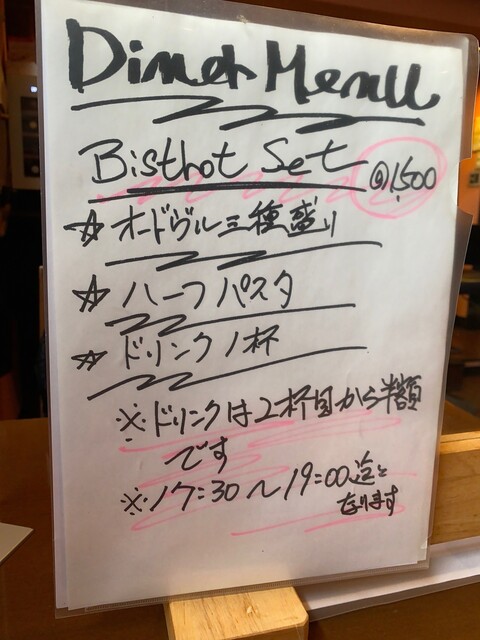 Dinner Menu
Bisthot Set @1,500
☆ オードヴル三種盛り
☆ ハーフパスタ
☆ ドリンク1杯
※ドリンクは2杯目から半額
です
※17:30〜19:00迄と
なります